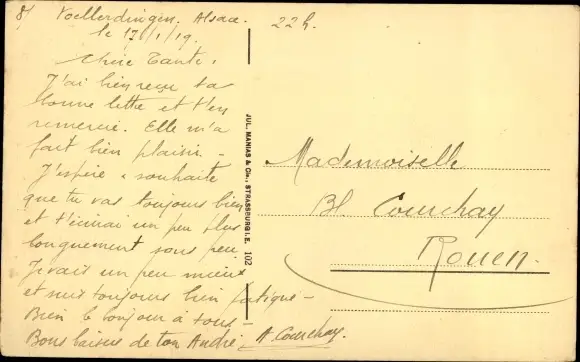 8/ Voellerdingen. Alsace.
le 17/1/19.
22h.
Chère Tante,
J'ai bien reçu ta
bonne lettre et t'en
remercie. Elle m'a
fait bien plaisir.
J'espère & souhaite
que tu vas toujours bien
et t'écrirai un peu plus
longuement sous peu.
Je vais un peu mieux
et suis toujours bien fatigué —
Bien le bonjour à tous —
Bons baisers de ton André. A. Courchay.
JUL. MANIAS & Cie., STRASSBURG i. E. 102
Mademoiselle
Bl Courchay
Rouen.